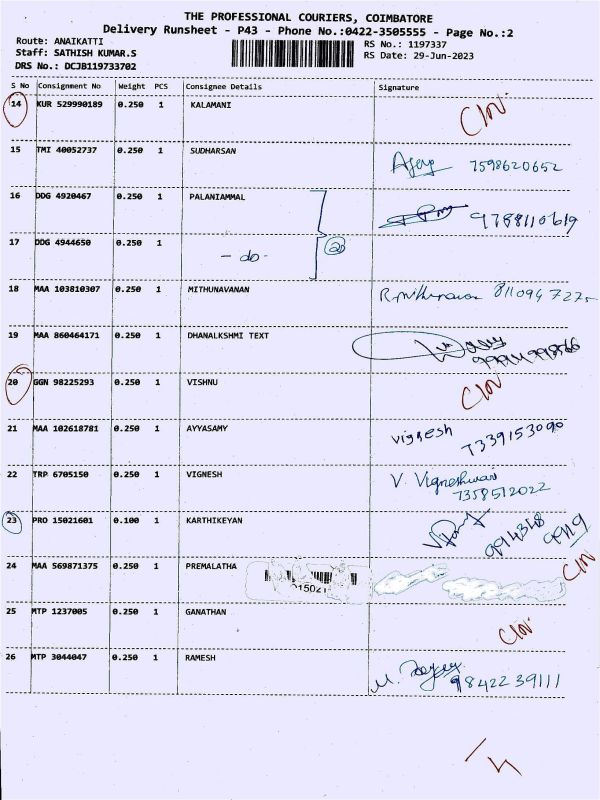 THE PROFESSIONAL COURIERS, COIMBATORE
Delivery Runsheet - P43 - Phone No.:0422-3505555 - Page No.:2
Route: ANAIKATTI
Staff: SATHISH KUMAR.S
DRS No.: DCJB119733702
RS No.: 1197337
RS Date: 29-Jun-2023
S No Consignment No Weight PCS Consignee Details Signature
14 KUR 529990189 0.250 1 KALAMANI
15 TMI 40052737 0.250 1 SUDHARSAN 7598620652
16 DDG 4920467 0.250 1 PALANIAMMAL 9788110619
17 DDG 4944650 0.250 1 - do - 2
18 MAA 103810307 0.250 1 MITHUNAVANAN
19 MAA 860464171 0.250 1 DHANALKSHMI TEXT
20 GGN 98225293 0.250 1 VISHNU
21 MAA 102618781 0.250 1 AYYASAMY vignesh 7339153090
22 TRP 6705150 0.250 1 VIGNESH V. Vigneshwari
7358512022
23 PRO 15021601 0.100 1 KARTHIKEYAN
24 MAA 569871375 0.250 1 PREMALATHA
25 MTP 1237005 0.250 1 GANATHAN
26 MTP 3044047 0.250 1 RAMESH 9842239111